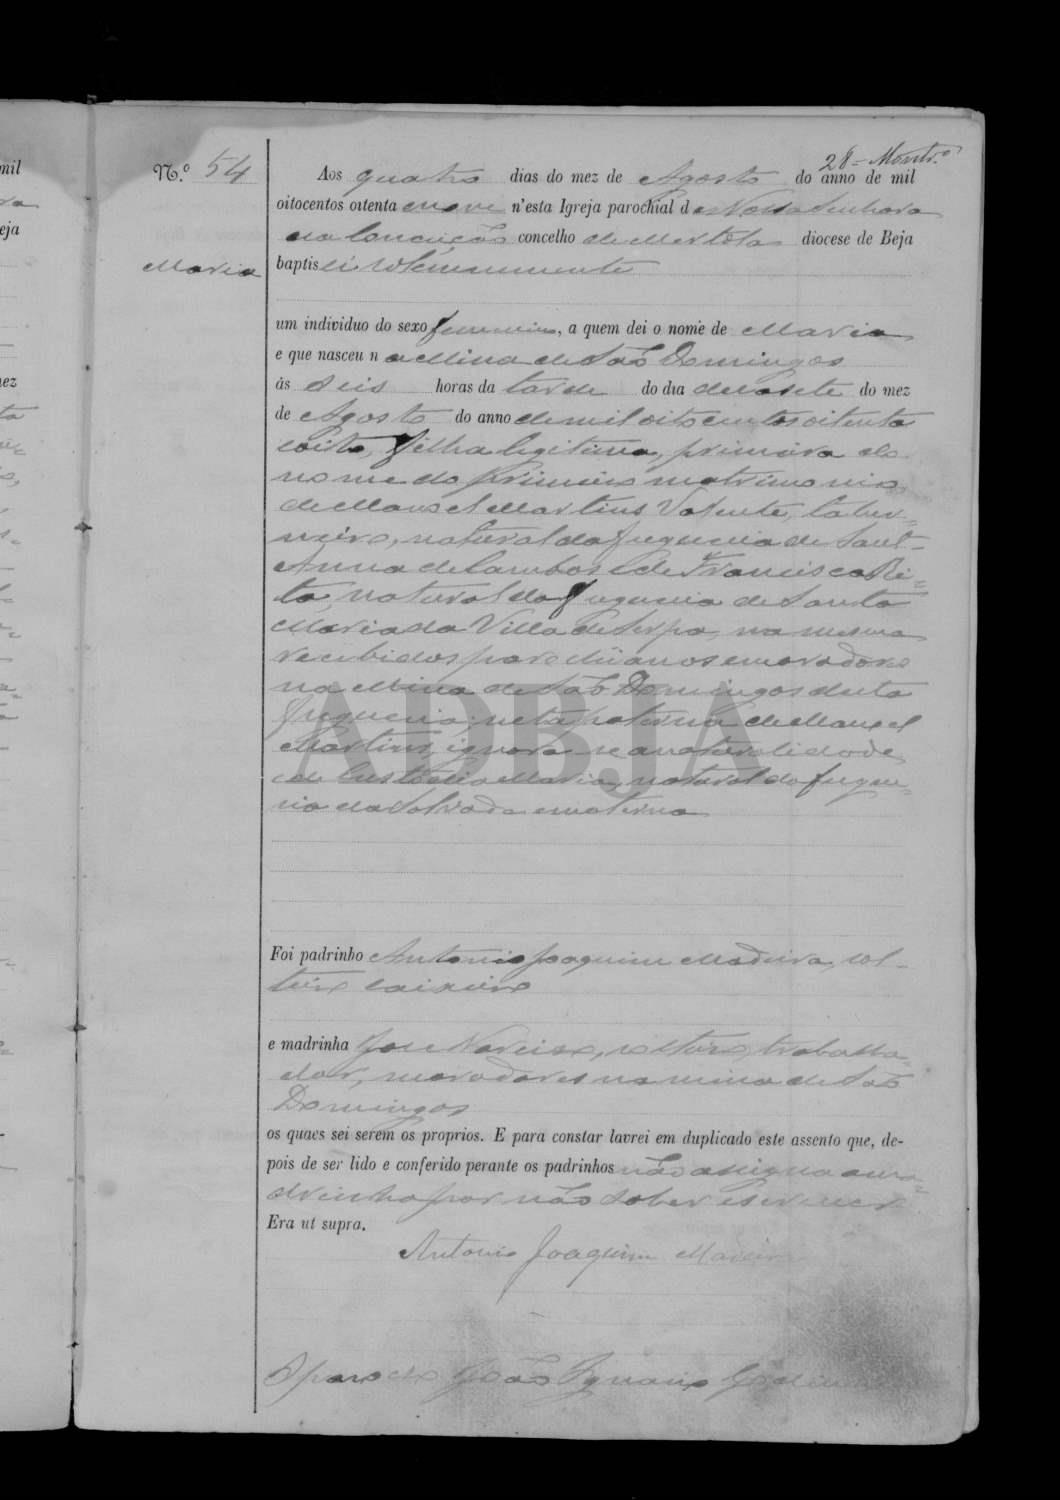 28 - Montr.º
N.º 54
Aos quatro dias do mez de Agosto do anno de mil
oitocentos oitenta e nove n'esta Igreja parochial de Nossa Senhora
da Conceição concelho de Mertola diocese de Beja
Maria
baptisei solemnemente
um individuo do sexo femenino, a quem dei o nome de Maria
e que nasceu na Mina de São Domingos
ás seis horas da tarde do dia dezasete do mez
de Agosto do anno de mil oitocentos oitenta
e oito, filha legitima, primeira do
nome do primeiro matrimonio
de Manoel Martins Valente, taber-
neiro, natural da freguesia de Sant-
Anna de Cambas e de Francisca Ri-
ta, natural da freguesia de Santa
Maria da Villa de Serpa, na mesma
recebidos parochianos e moradores
na Mina de São Domingos desta
freguesia; neta paterna de Manoel
Martins, ignora-se a naturalidade,
e de Custodia Maria, natural da fregue-
sia da Salvada e materna
Foi padrinho Antonio Joaquim Madeira, sol-
teiro caixeiro
e madrinha José Narciso, solteiro, trabalha-
dor, moradores na mina de São
Domingos
os quaes sei serem os proprios. E para constar lavrei em duplicado este assento que, de-
pois de ser lido e conferido perante os padrinhos não assigna a ma-
drinha por não saber escrever
Era ut supra.
Antonio Joaquim Madeira
O parocho João Ignacio
ADBJA
mil
eja
nez